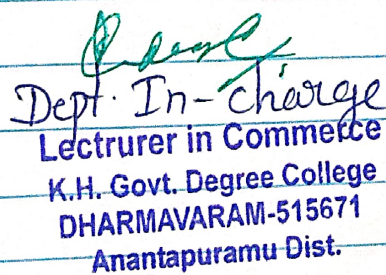 Dept. In-charge
Lectrurer in Commerce
K.H. Govt. Degree College
DHARMAVARAM-515671
Anantapuramu Dist.